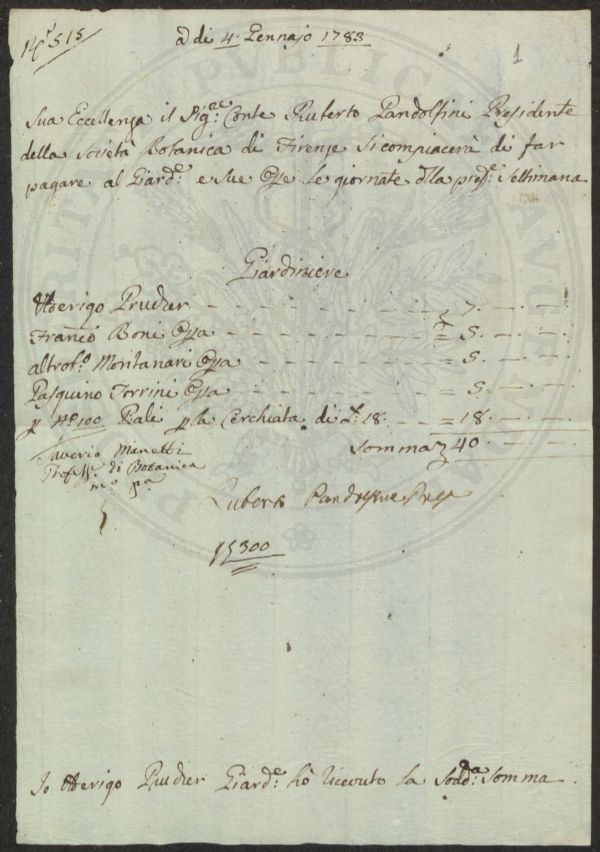 515
a dì 4. Gennajo 1783
1
Sua Eccellenza il Sig:re Conte Ruberto Pandolfini Presidente
della Società Botanica di Firenze si compiacerà di far
pagare al Giard:e e sue Ope le giornate d:lla pres:e Settimana
Giardiniere
Prucker - - - - - 7. - -
Franc:o Boni Opa - - - - = 5. - -
altro f:o Montanari Opa - - - - 5. - -
Pasquino Torrini Opa - - - - = 5. - -
p N:o 100 Pali p la Cerchiata di £ 18. - - = 18. - -
Somma 40 - -
Saverio Manetti
Profess:e di Botanica
m:o pa
Ruberto Pandolfini Pres
300
Io Giard:e hò riceuto la Sodd:a Somma.